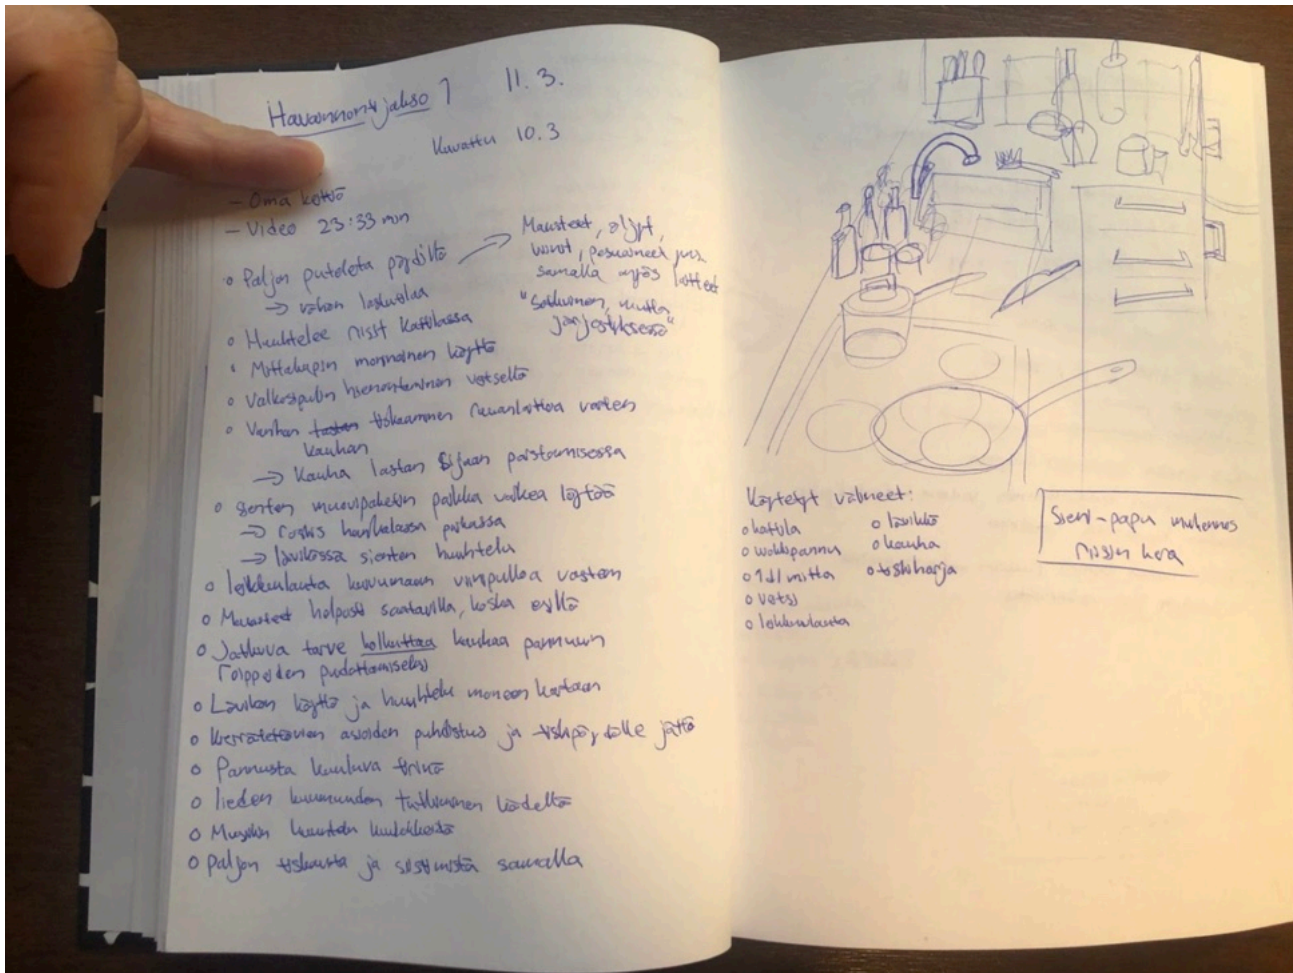 Havainnointijakso 1 11.3.
Kuvattu 10.3
- Oma keittiö
- Video 23:33 min
o Paljon puteleita pöydillä →
→ vähän laskutilaa
Mausteet, öljyt,
posuaineet jns.
samalla myös laitteet
"Sotkuinen, mutta
järjestyksessä"
o Huuhtelee riisit kattilassa
o Mittakupin moninainen käyttö
o Valkosipulin hienontaminen veitsellä
o Vanhan tiskaaminen ruuanlaittoa varten
kauhan
→ Kauha lastan sijaan paistamisessa
o Sienten muovipaketin paikka vaikea löytää
→ roskis hankalassa paikassa
→ lävikössä sienten huuhtelu
o leikkuulauta kuivumaan viinipulloa vasten
o Mausteet helposti saatavilla, koska esillä
o Jatkuva tarve kolkuttaa kauhaa pannuun
roippeiden pudottamiseksi
o Lävikön käyttö ja huuhtelu moneen kertaan
o Kierrätettävien asioiden puhdistus ja tiskipöydälle jättö
o Pannusta kuuluva tirinä
o lieden kuumuuden tutkiminen kädellä
o Musiikin kuuntelu kuulokkeista
o Paljon tiskausta ja siistimistä samalla
Käytetyt välineet:
o kattila o lävikkö
o wokkipannu o kauha
o 1dl mitta o tiskiharja
o veitsi
o leikkuulauta
Sieni-papu muhennos
riisin kera